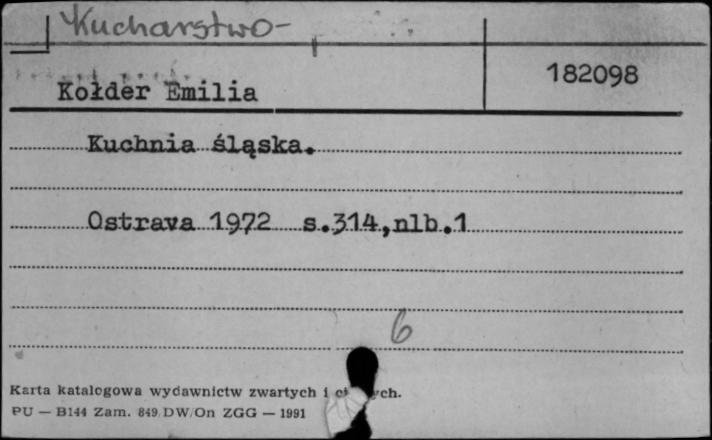 Kucharstwo-
Kołder Emilia
182098
Kuchnia śląska.
Ostrava 1972 s.314,nlb.1
6
Karta katalogowa wydawnictw zwartych i
PU — B144 Zam. 849/DW/On ZGG — 1991